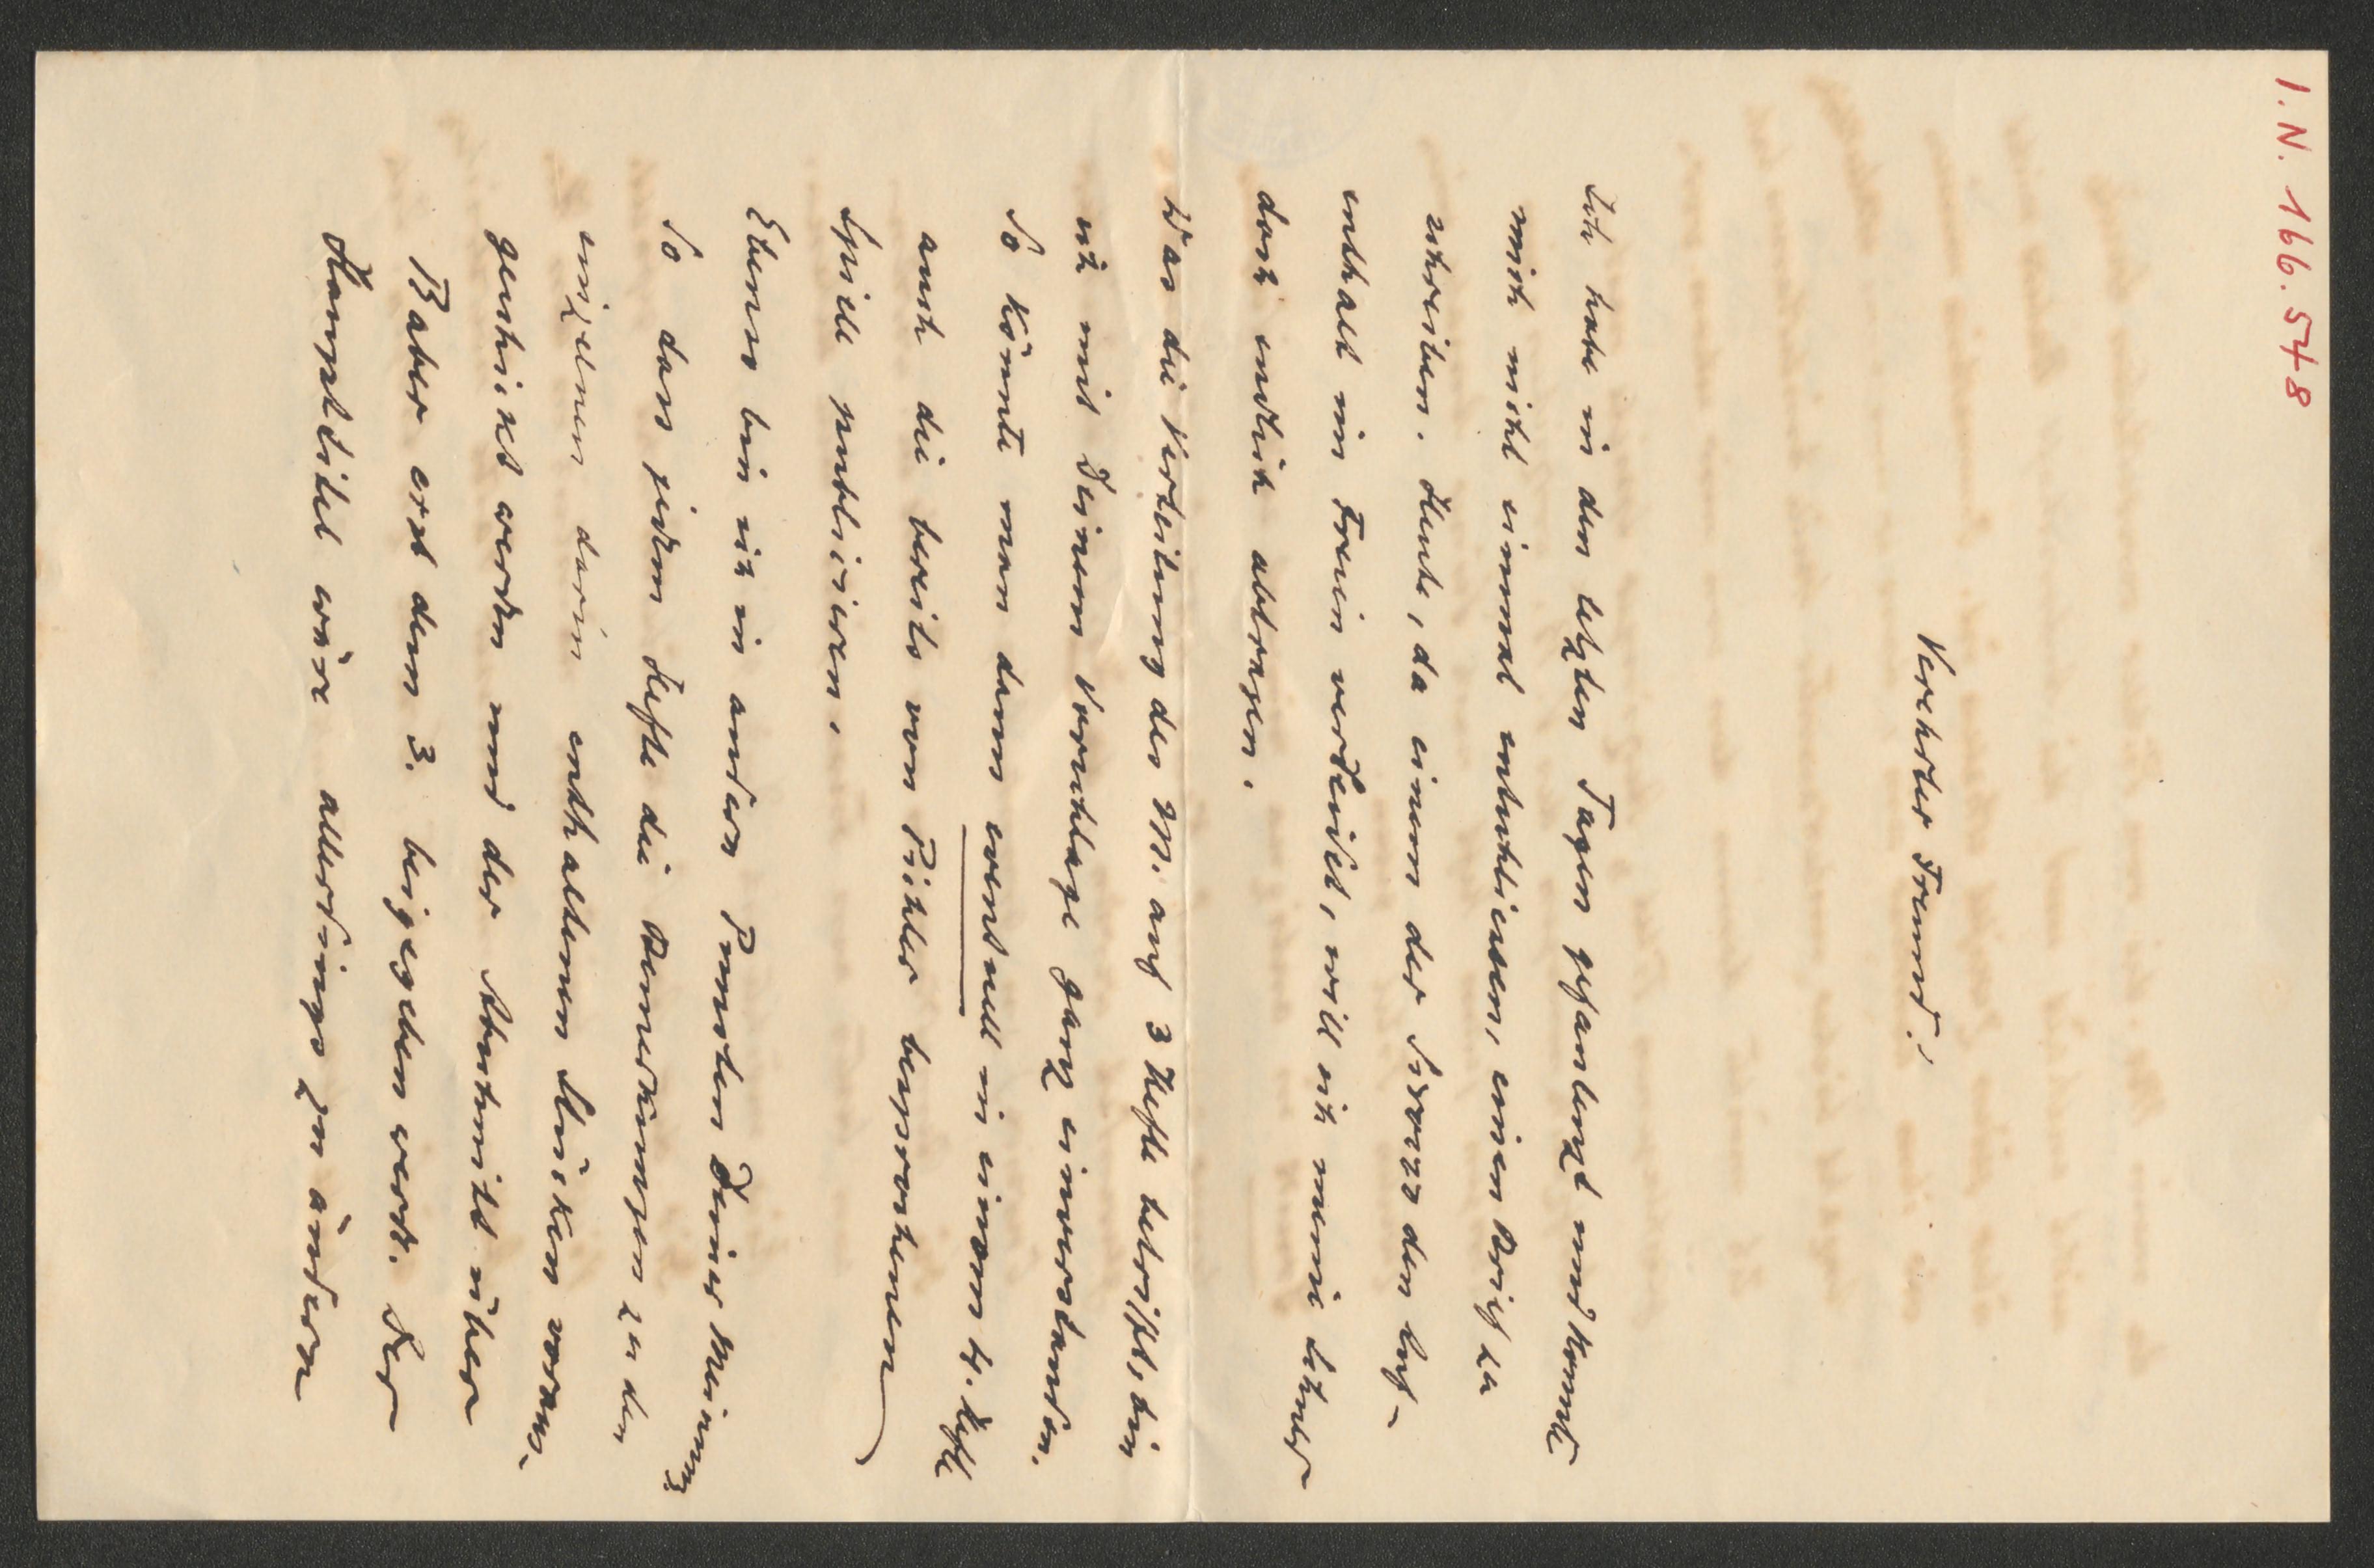 I.N. 166.548
Verehrter Freund!
Ich habe in den letzten Tagen gefaulenzt und konnte
mich nicht einmal entschliessen, einen Brief zu
schreiben. Heute, da einem der Sirocco den Auf-
enthalt im Freien verleidet, will ich meine Schuld
doch endlich abtragen.
Was die Verteilung des M. auf 3 Hefte betrifft, bin
ich mit Deinem Vorschlage ganz einverstanden.
So könnte man dann eventuell in einem 4. Heft
auch die bereits von Pichler besprochenen
Spiele publicieren.
Ebenso bin ich in andern Punkten Deiner Meinung,
so dass jedem Hefte die Bemerkungen zu den
einzelnen darin enthaltenen Stücken voraus-
geschickt werden und der Abschnitt über
Raber erst dem 3. beigegeben werde. Der
Haupttitel wäre allerdings zu ändern